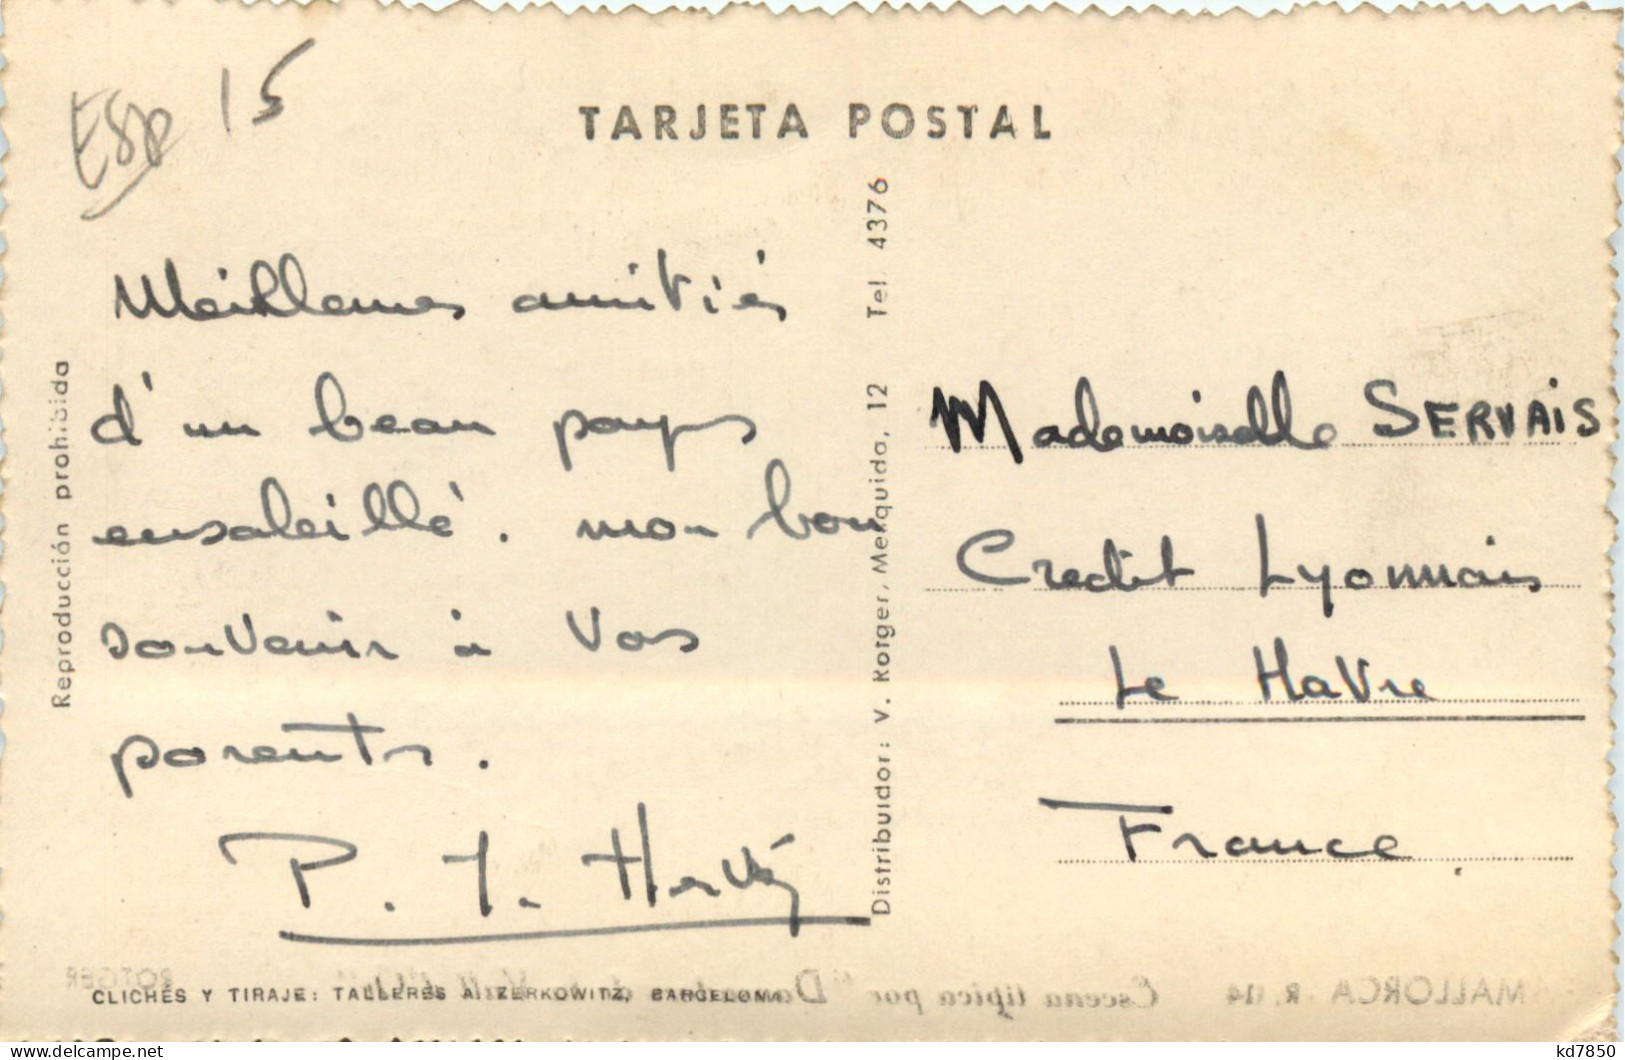 Esp 15
TARJETA POSTAL
Meilleures amitiés
d'un beau pays
ensoleillé. mon bon
souvenir à vos
parents.
P. J. Hervé
Reproducción prohibida
Distribuidor: V. Rotger, Mezquida, 12 Tel 4376
Mademoiselle SERVAIS
Credit Lyonnais
Le HaVre
France.
CLICHÉS Y TIRAJE: TALLERES A. ZERKOWITZ, BARCELONA
ROTGER
MALLORCA R. 114 Escena típica por
kd7850